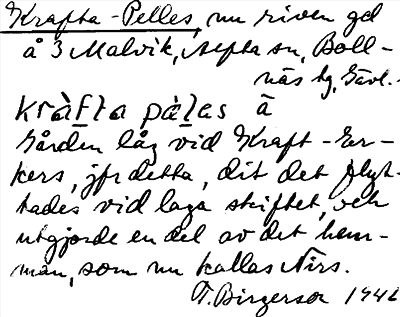 Krafta-Pelles, nu riven gd
å 3 Malvik, Alfta sn, Boll-
näs tg, Gävl.
kràfta pàles ä
Gården låg vid Kraft-Er-
kers, jfr detta, dit det flyt-
tades vid laga skiftet, och
utgjorde en del av det hem-
man, som nu kallas Nirs.
T. Birgersson 1946